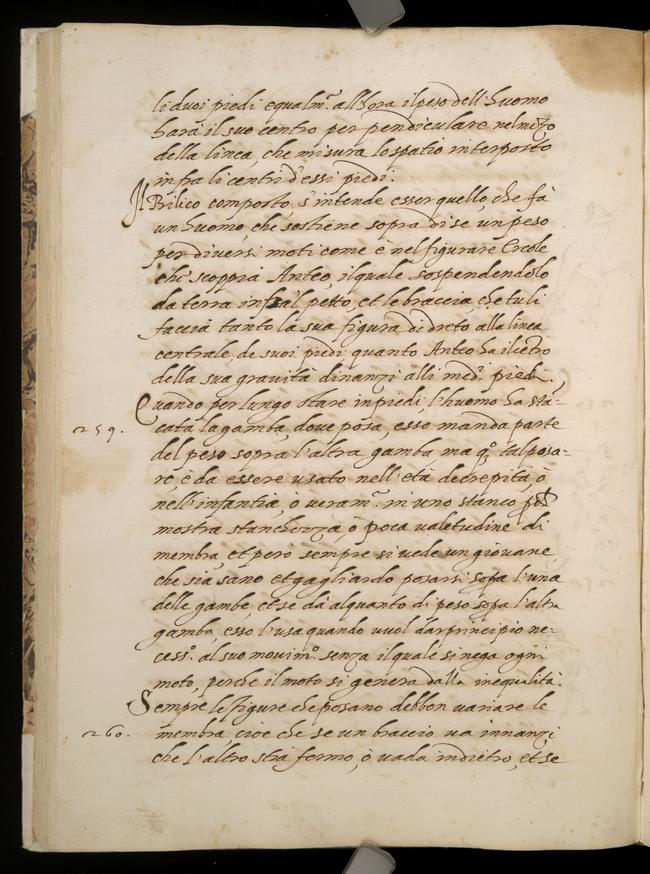 li duoi piedi equalm.te all'hora il peso dell'huomo
harà il suo centro perpendiculare nel mezo
della linea, che misura lo spatio interposto
infra li centri d'essi piedi.
Il Bilico composto s'intende esser quello, che fà
un huomo, che sostiene sopra di se un peso
per diversi moti come è nel figurare Ercole
che scoppia Anteo, il quale sospendendolo
da terra infra'l petto, et le braccia, che tu li
faccia tanto la sua figura di dreto alla linea
centrale, de suoi piedi, quanto Anteo ha il cẽtro
della sua gravità dinanzi alli med.i piedi.
Quando per lungo stare in piedi, l'huomo ha sta=
259. cata la gamba, dove posa, esso manda parte
del peso sopra l'altra gamba ma q.o tal posa=
re, è da essere usato nell'età decrepita, ò
nell'infantia, ò veram.te in uno stanco
mostra stanchezza, ò poca valetudine di
membra, et però sempre si vede un giovane,
che sia sano et gagliardo posarsi sopa l'una
delle gambe, et se dà alquanto di peso sopa l'altra
gamba, esso l'usa quando vuol dar principio ne=
cess.o al suo movim.o senza il quale si nega ogni
moto, perche il moto si genera dalla inequalità.
Sempre le figure che posano debbon variare le
260. membra, cioe che se un braccio va innanzi
che l'altro stia fermo, ò vada indietro, et se